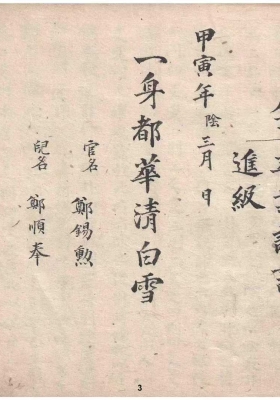 進級
甲寅年陰三月 日
一身都華清白雪
官名 鄭錫勲
兒名 鄭順奉
3